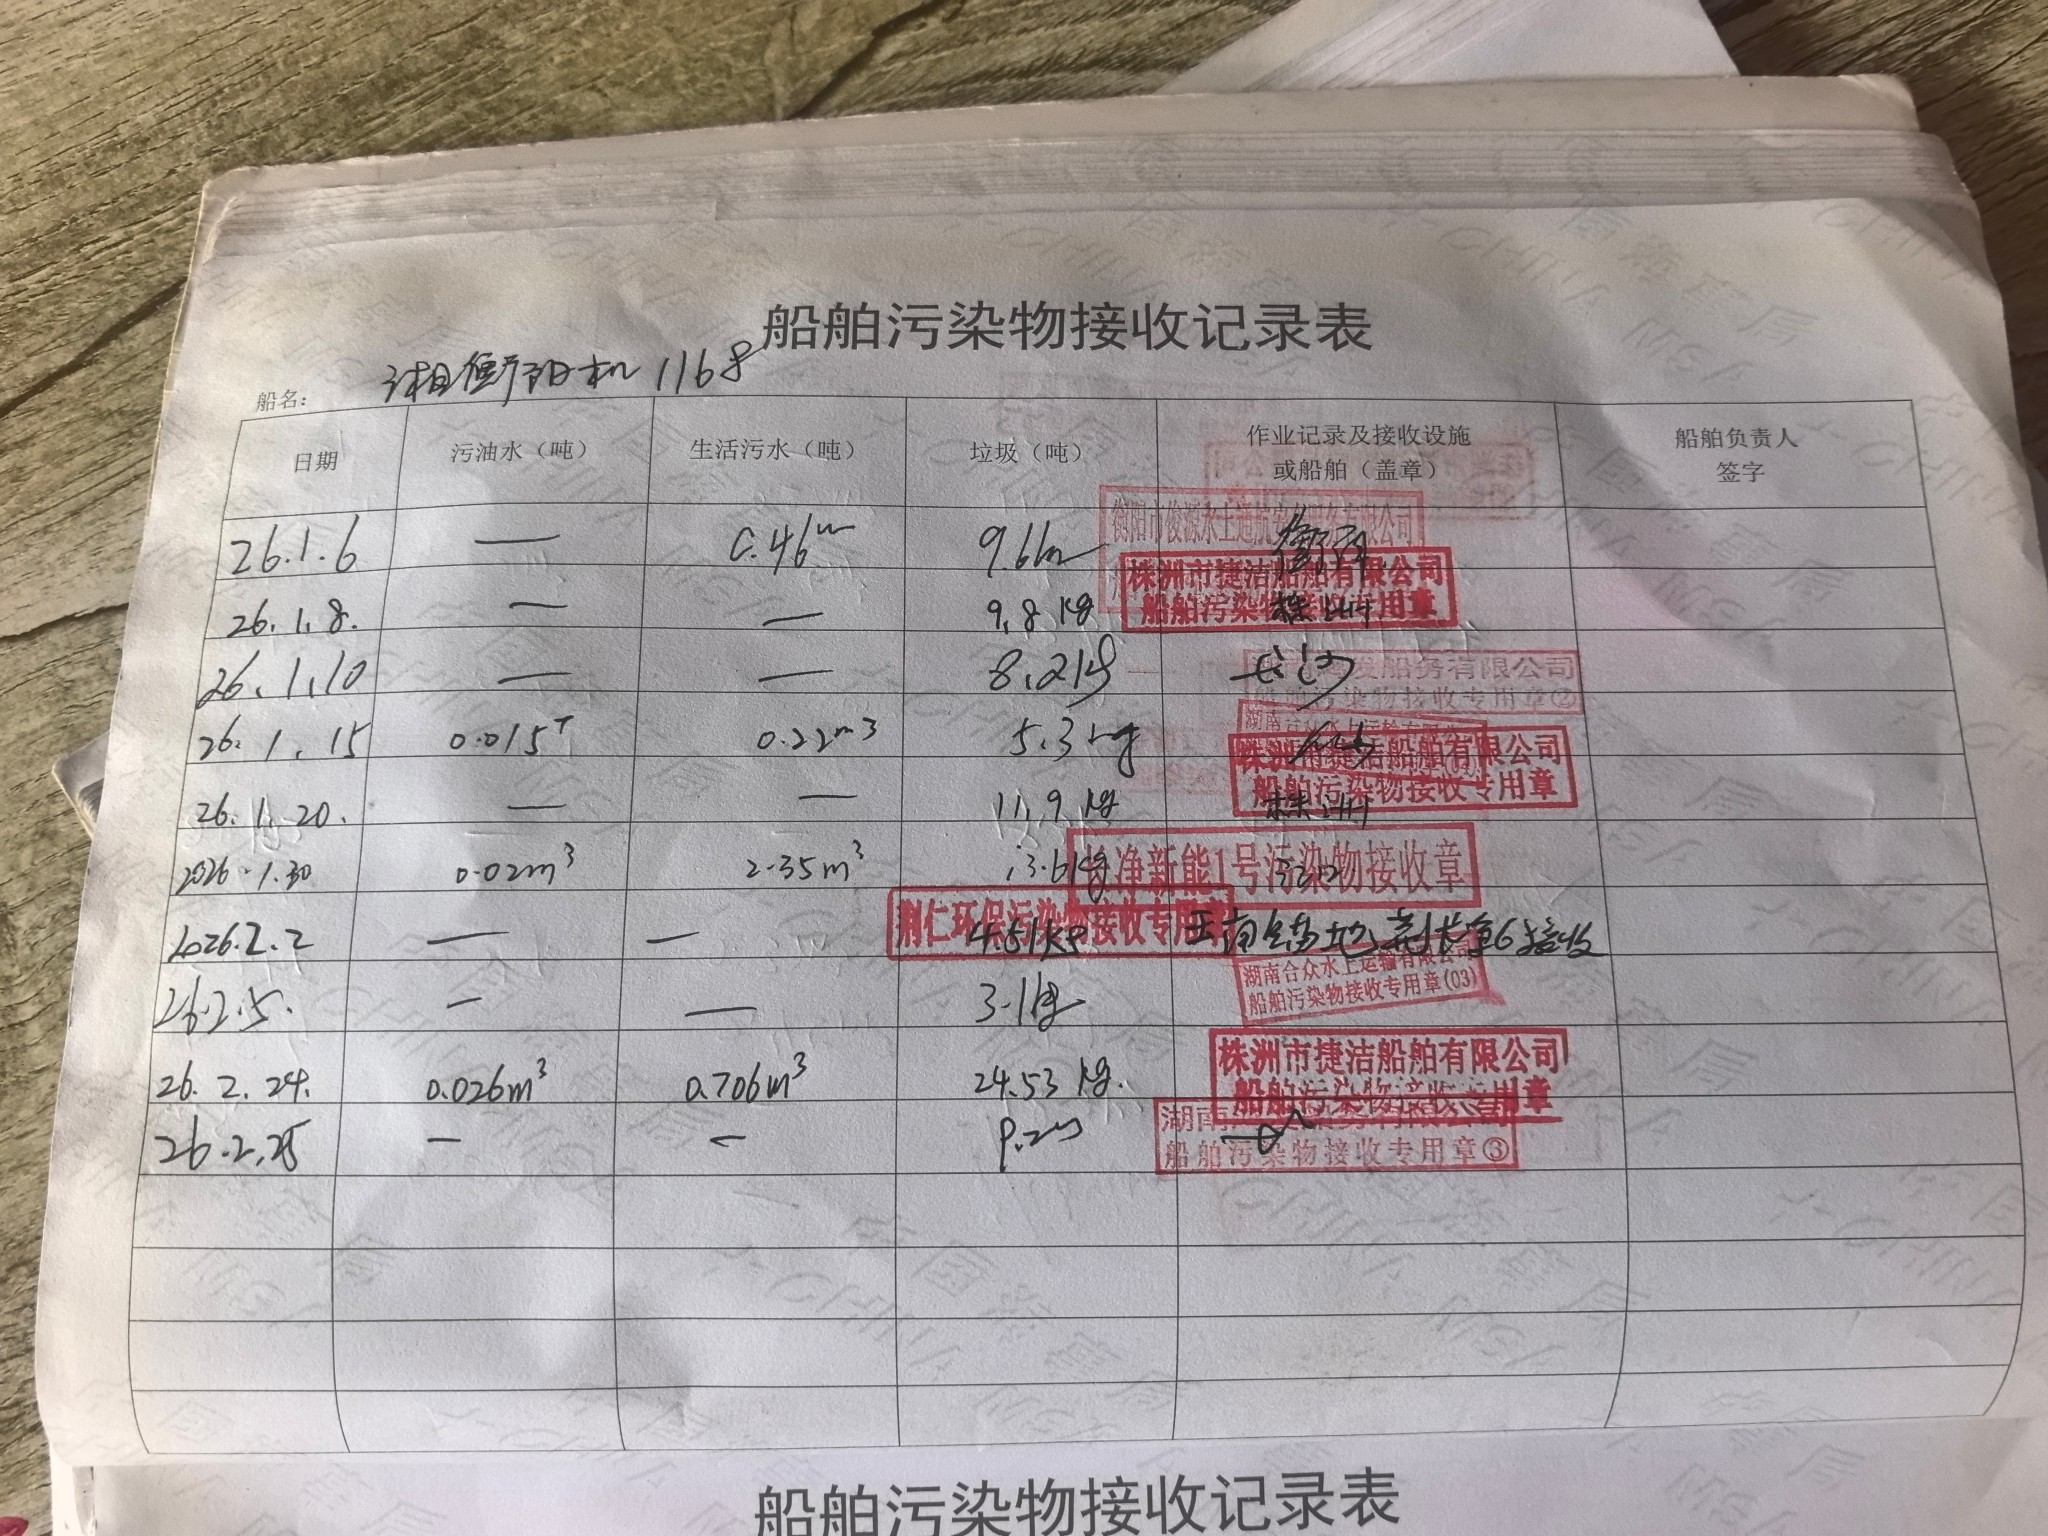 船舶污染物接收记录表
船名： 湘衡阳机1168
日期 污油水（吨） 生活污水（吨） 垃圾（吨） 作业记录及接收设施或船舶（盖章） 船舶负责人签字
26.1.6 — 0.46 9.6 衡阳
衡阳市俊源水上
26.1.8. — — 9.8 kg 株洲
株洲市捷洁船舶有限公司
船舶污染物接收专用章
26.1.10 — — 8.2kg 长沙
发船务有限公司
船舶污染物接收专用章②
26.1.15 0.015T 0.22m3 5.3kg
湖南合众水上运输有限公司
26.1.20. — — 11.9 kg 株洲
株洲市捷洁船舶有限公司
船舶污染物接收专用章
2026.1.30 0.02m3 2.35m3 13.6kg
净新能1号污染物接收章
2026.2.2 — — 4.51kg
荆仁环保污染物接收专用章
26.2.5. — — 3.1kg
湖南合众水上运输有限公司
船舶污染物接收专用章(03)
26.2.24. 0.026m3 0.706m3 24.53 kg.
株洲市捷洁船舶有限公司
船舶污染物接收专用章
26.2.25 — — 9.2
湖南
船舶污染物接收专用章③
船舶污染物接收记录表